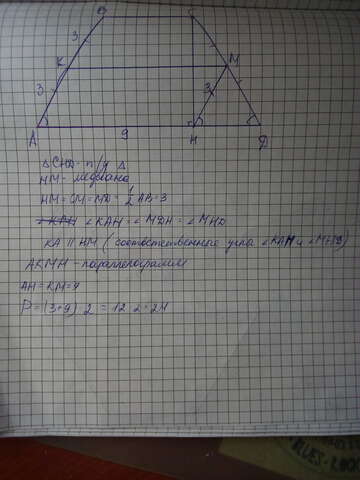 B C
3
K M
3 3
A 9 H D
△CHD - п/у △
HM - медиана
HM = CM = MD = 1/2 AB = 3
∠KAH = ∠MDH = ∠MHD
KA || HM (соответственные углы ∠KAH и ∠MHD)
AKMH - параллелограмм
AH = KM = 9
P = (3+9) · 2 = 12 · 2 = 24
BLUES-ROCK